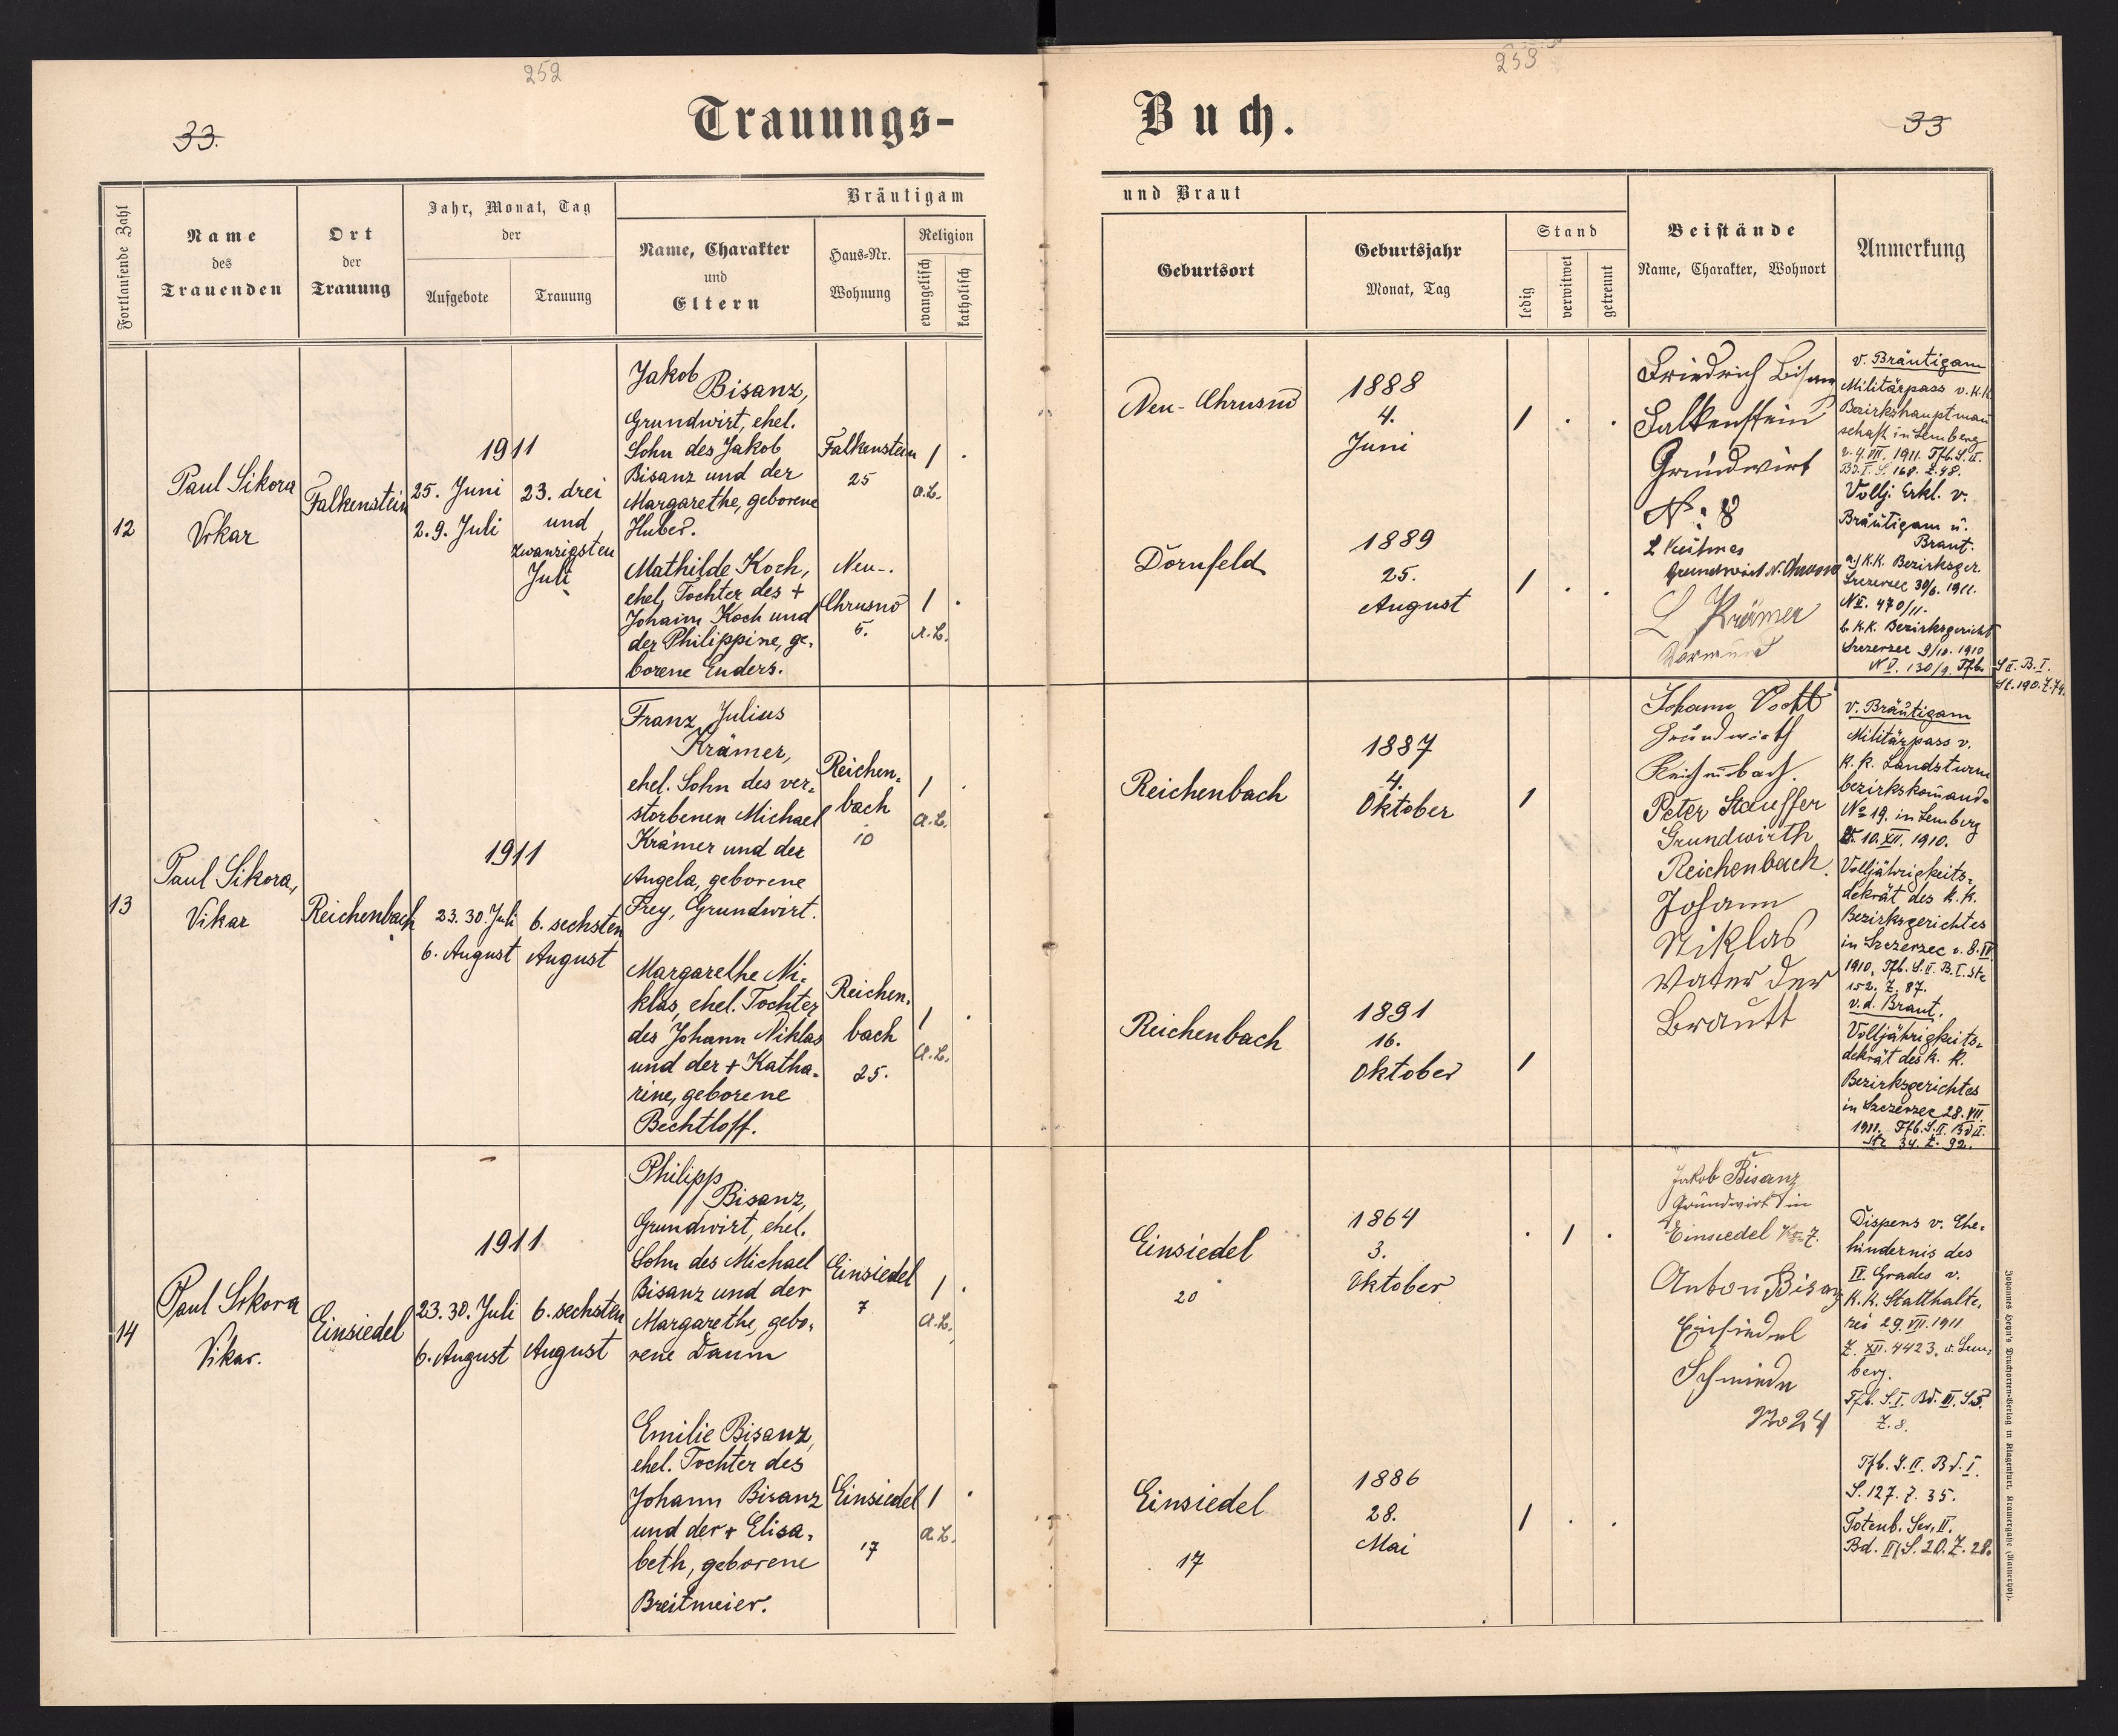 252
253
33.
Trauungs-
Buch.
33
Fortlaufende Zahl
Name
des
Trauenden
Ort
der
Trauung
Jahr, Monat, Tag
der
Aufgebote
Trauung
Bräutigam
Name, Charakter
und
Eltern
Haus-Nr.
Wohnung
Religion
evangelisch
katholisch
und Braut
Geburtsort
Geburtsjahr
Monat, Tag
Stand
ledig
verwitwet
getrennt
Beistände
Name, Charakter, Wohnort
Anmerkung
12
Paul Sikora
Vikar
Falkenstein
1911
25. Juni
2. 9. Juli
23. drei
und
zwanzigsten
Juli
Jakob
Bisanz,
Grundwirt, ehel.
Sohn des Jakob
Bisanz und der
Margarethe, geborene
Huber.
Falkenstein
25
1 .
A.L.
Mathilde Koch,
ehel. Tochter des +
Johann Koch und
der Philippine, ge-
borene Enders.
Neu-
Chrusno
5.
1 .
A.L.
Neu-Chrusno
1888
4.
Juni
1 . .
Dornfeld
1889
25.
August
1 . .
Friedrich Bisanz
Falkenstein
Grundwirt
No. 8
L Krämer
v. Bräutigam
Militärpass v. k.k.
Bezirkshauptman
schaft in Lemberg
v. 4. III. 1911. Tfb. S. II.
Bd. I. S. 168. Z. 48.
Vollj. Erkl. v.
Bräutigam u.
Braut.
a) k.k. Bezirksger.
Szczerzec 30/6. 1911.
N II. 470/11.
b. k.k. Bezirksgericht
Szczerzec 9/10. 1910
N V. 130/9. Tfb.
S II. B. I.
St. 190. Z. 74.
13
Paul Sikora,
Vikar
Reichenbach
1911
23. 30. Juli
6. August
6. sechsten
August
Franz Julius
Krämer,
ehel. Sohn des ver-
storbenen Michael
Krämer und der
Angela, geborene
Frey, Grundwirt.
Reichen-
bach
10
1 .
A.L.
Margarethe Ni-
klas, ehel. Tochter
des Johann Niklas
und der + Katha-
rine, geborene
Bechtloff.
Reichen-
bach
25.
1 .
A.L.
Reichenbach
1887
4.
Oktober
1
Reichenbach
1891
16.
Oktober
1
Johann Vocht
Grundwirth
Reichenbach.
Peter Stauffer
Grundwirth
Reichenbach.
Johann
Niklas
Vater der
Brautt
v. Bräutigam
Militärpass v.
k. k. Landsturm
bezirkskomando
No 19. in Lemberg
v. 10. XII. 1910.
Volljährigkeits-
dekrät des k. k.
Bezirksgerichtes
in Szczerzec v. 8. IV.
1910. Tfb. S. II. B. I. Ste
152. Z. 87.
v. d. Braut.
Volljährigkeits-
dekrät des k. k.
Bezirksgerichtes
in Szczerzec 28. VII.
1911. Tfb. S. II. Bd II.
Ste 34. Z. 92.
14
Paul Sikora
Vikar.
Einsiedel
1911
23. 30. Juli
6. August
6. sechsten
August
Philipp
Bisanz,
Grundwirt, ehel.
Sohn des Michael
Bisanz und der
Margarethe, gebo-
rene Daum
Einsiedel
7
1 .
A.L.
Emilie Bisanz,
ehel. Tochter des
Johann Bisanz
und der + Elisa-
beth, geborene
Breitmeier.
Einsiedel
17
1 .
A.L.
Einsiedel
20
1864
3.
Oktober
. 1 .
Einsiedel
17
1886
28.
Mai
1 . .
Jakob Bisanz
Grundwirt in
Einsiedel No 7.
Anton Bisanz
Einsiedel
Schmiede
No 24
Dispens v. Ehe-
hindernis des
IV. Grades v.
k. k. Statthalte-
rei 29. VII. 1911
Z. XII. 4423. v. Lem-
berg.
Tfb. S. I. Bd. III. S. 5.
Z. 8.
Tfb. S. II. Bd. I.
S. 127. Z. 35.
Totenb. Ser. II.
Bd. II S. 20. Z. 28.
Johannes Heyn's Drucksorten-Verlag in Klagenfurt, Kramergasse (Kamerhof).